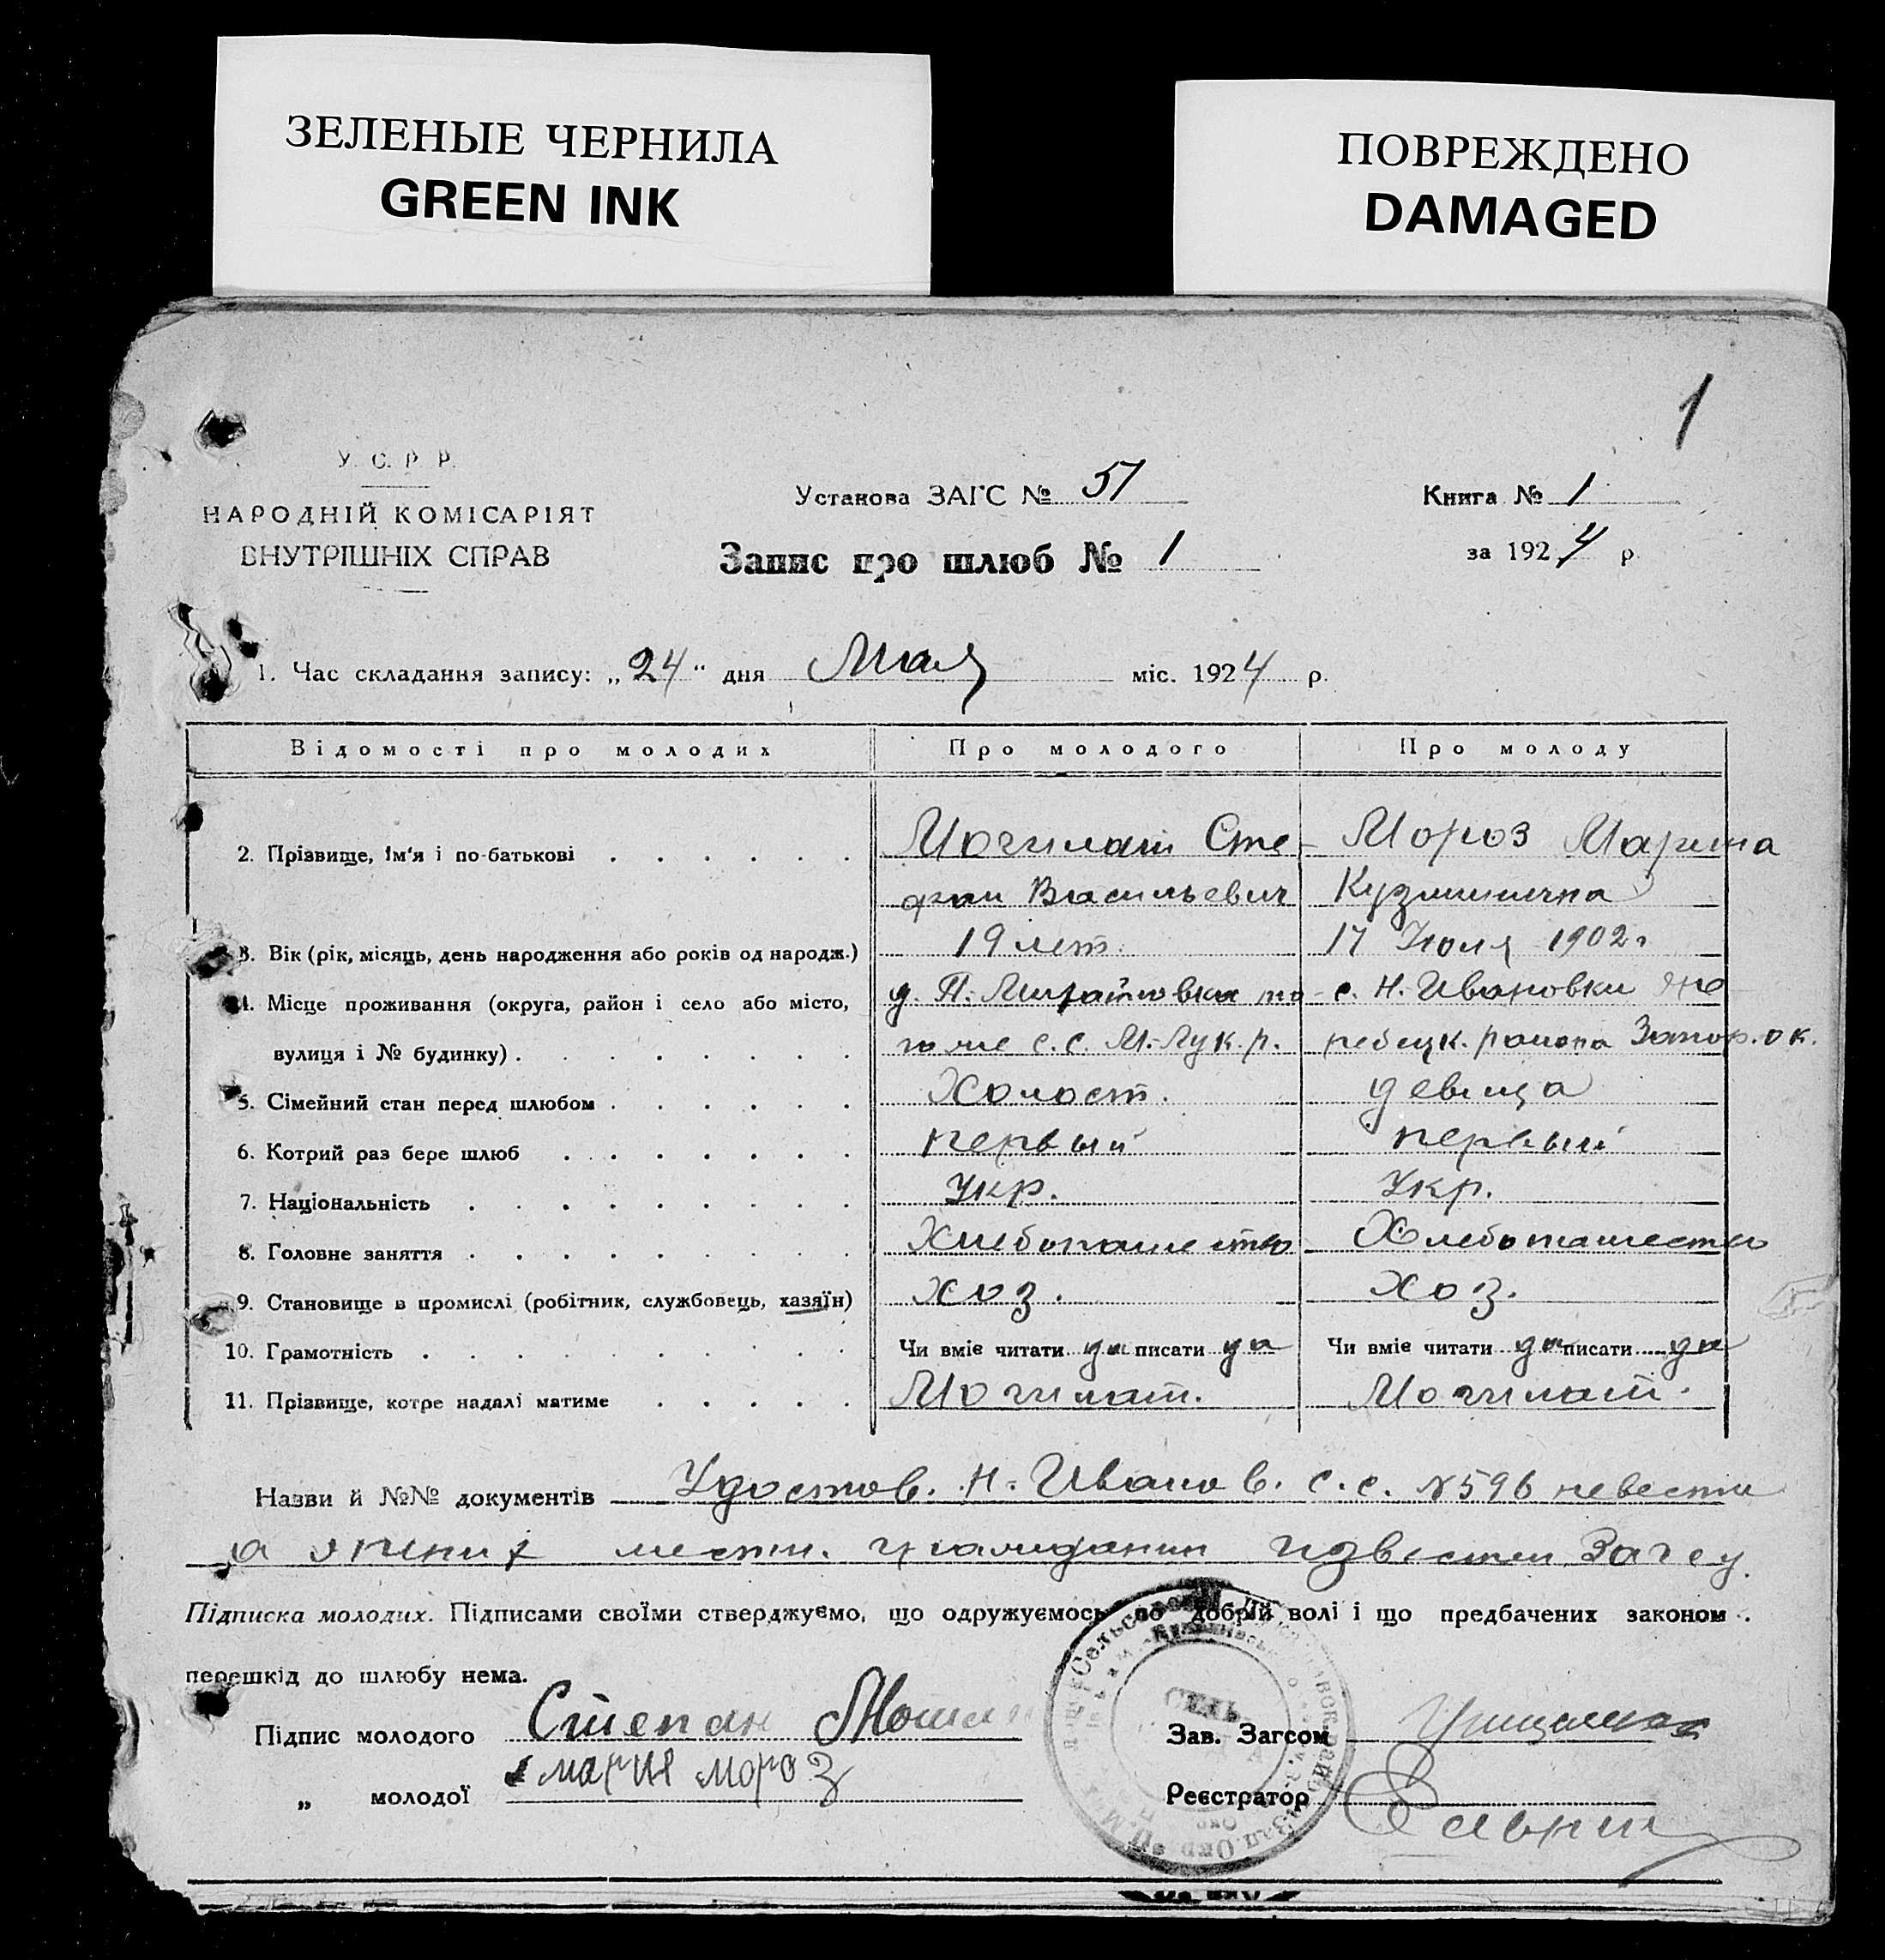 ЗЕЛЕНЫЕ ЧЕРНИЛА
GREEN INK
ПОВРЕЖДЕНО
DAMAGED
1
У. С. Р. Р.
НАРОДНІЙ КОМІСАРІЯТ
ВНУТРІШНІХ СПРАВ
Установа ЗАГС № 51
Книга № 1
Запис про шлюб № 1
за 1924 р
1. Час складання запису: „24" дня Мая міс. 1924 р.
Відомості про молодих Про молодого Про молоду
2. Прізвище, ім'я і по-батькові Могилат Сте- Мороз Марина
фан Васильевич Кузминична
3. Вік (рік, місяць, день народження або років од народж.) 19 лет. 17 Июля 1902 г
4. Місце проживання (округа, район і село або місто, с. Н.-Ивановки
вулиця і № будинку) с.с. М.-Лук.р. района Запор. ок.
5. Сімейний стан перед шлюбом Холост. девица
6. Котрий раз бере шлюб первый первый
7. Національність Укр. Укр.
8. Головне заняття Хлебопашество Хлебопашество
9. Становище в промислі (робітник, службовець, хазяїн) хоз. хоз.
10. Грамотність Чи вміє читати да писати да Чи вміє читати да писати да
11. Прізвище, котре надалі матиме Могилат. Могилат.
Назви й №№ документів Удостов. Н.-Иванов. с.с. №596 невести
а жених известен Загсу.
Підписка молодих. Підписами своїми стверджуємо, що одружуємось по добрій волі і що предбачених законом
перешкід до шлюбу нема.
Підпис молодого Степан
Зав. Загсом
„ молодої мария мороз
Реєстратор